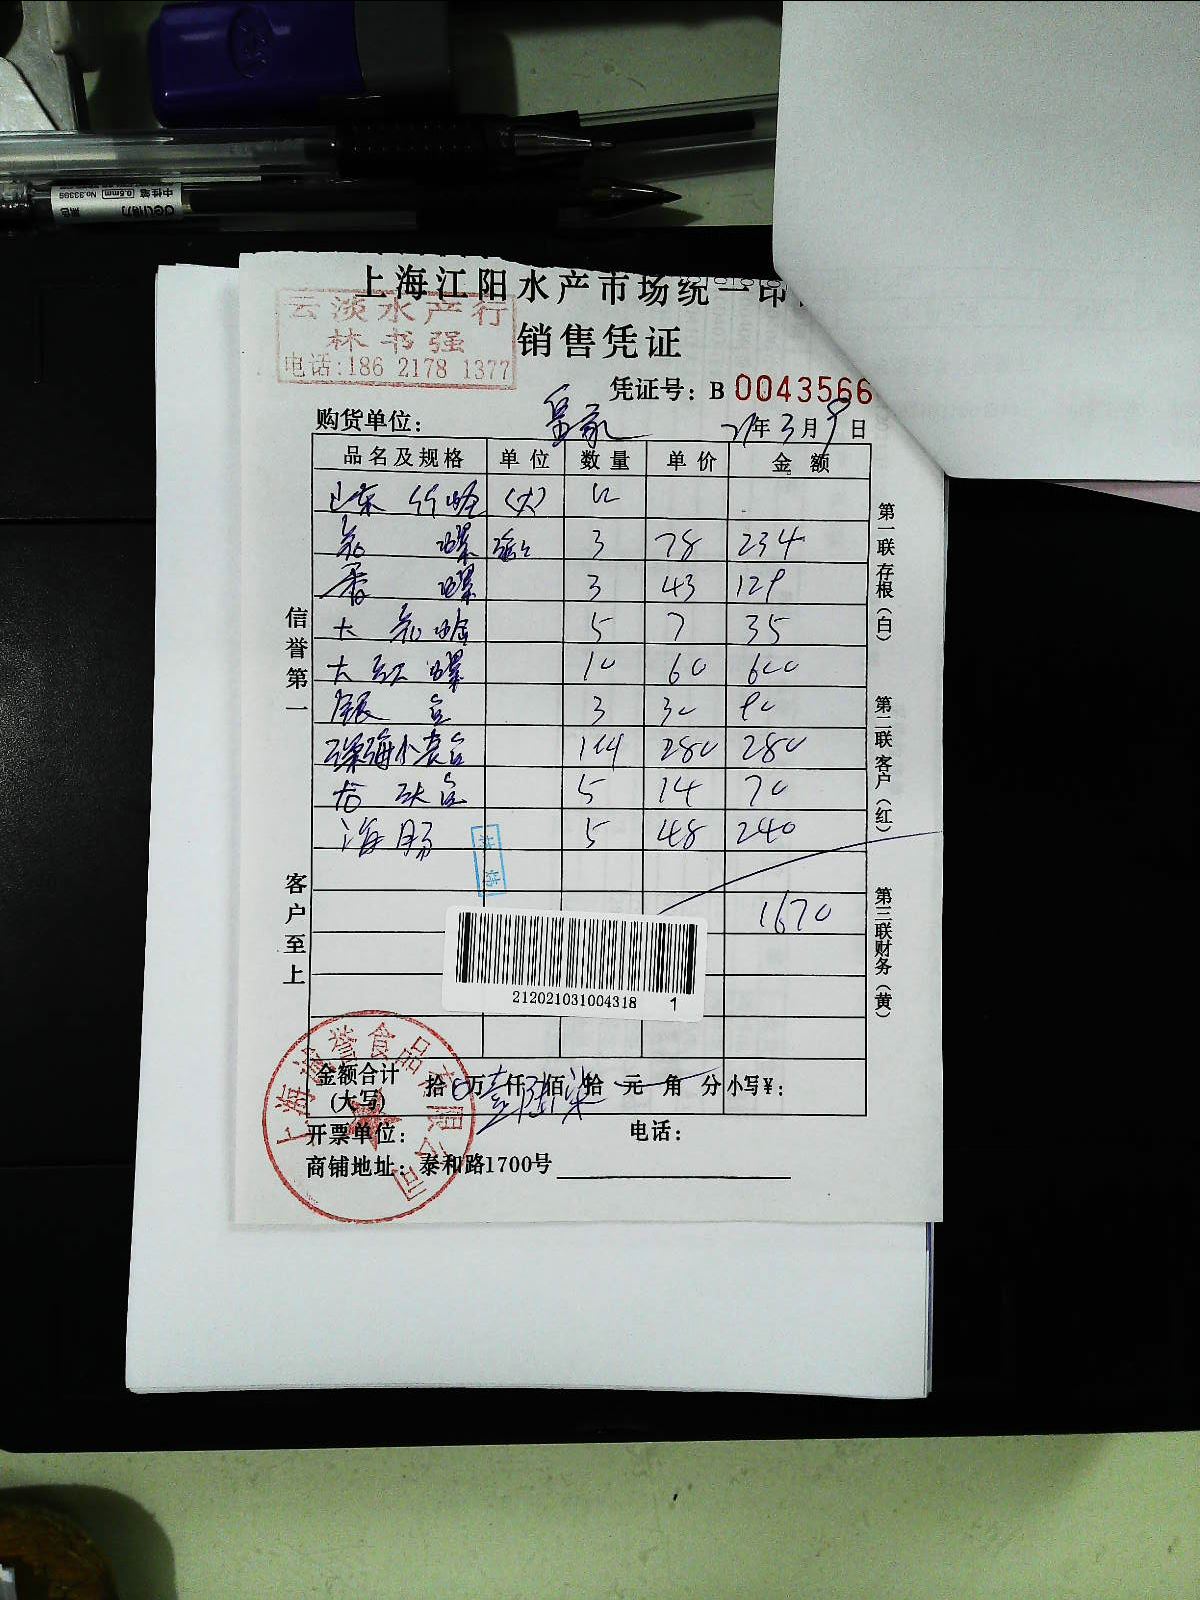 deli得力 中性笔
0.5mm No.33399
上海江阳水产市场统一印
云淡水产行
林书强
电话:186 2178 1377
销售凭证
凭证号: B 0043566
购货单位: 皇家 21年3月9日
品名及规格 单位 数量 单价 金额
山东 (大)
螺 3 78 234
香 螺 3 43 129
大 5 7 35
大红螺 10 60 600
银 3 30 90
深海小 1件 280 280
5 14 70
海肠 5 48 240
1670
212021031004318 1
金额合计(大写) 拾0万壹仟陆佰柒拾元角分 小写¥:
开票单位: 电话:
商铺地址: 泰和路1700号
上海渝誉食品有限公司
信誉第一
客户至上
第一联 存根(白)
第二联 客户(红)
第三联 财务(黄)